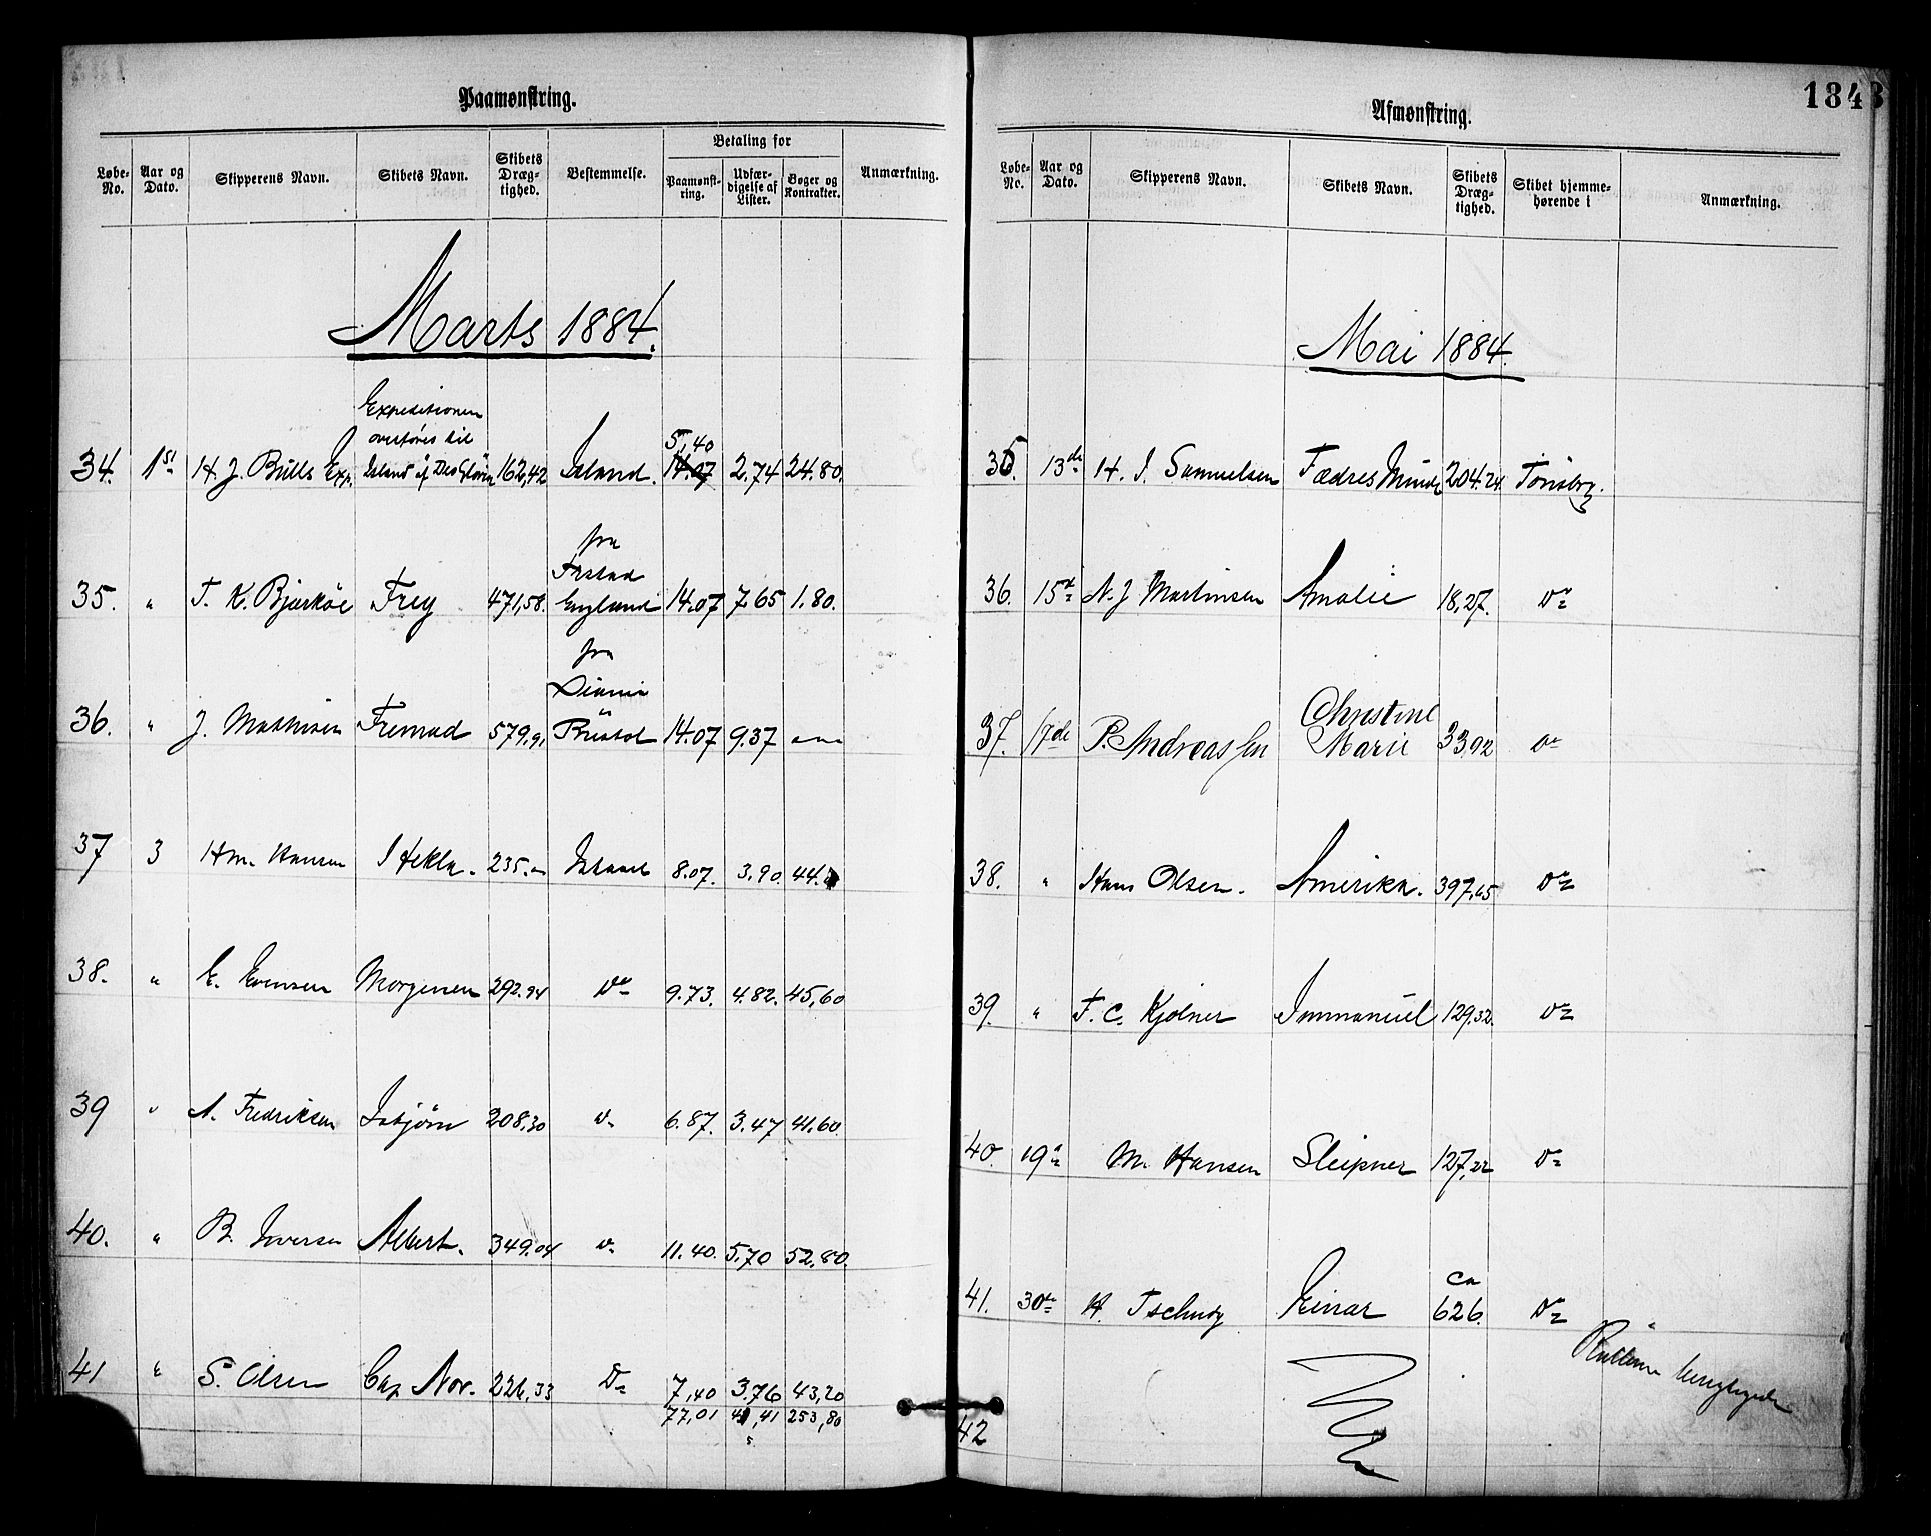 Paamønstring.
Løbe-No. Aar og Dato. Skipperens Navn. Skibets Navn. Skibets Dræg-tighed. Bestemmelse. Betaling for Paamønst-ring. Udfær-digelse af Lister. Bøger og Kontrakter. Anmærkning.
Marts 1884.
Expeditionen
overføres til
5,40
34. 1st H. J. Bulls Exp. Island af 162,42 Island. 14.07 2.74 24.80.
fra
35. " T. K. Bjørkøe Frey 471,58. England 14.07 7.65 1.80.
fra
36. " J. Mathisen Fremad 579.91 Bristol 14.07 9.37
37 3 Hm. Hansen Hekla. 235. Island 8.07. 3.90. 44.
38. " E. Evensen Morgenen 292.94 Do 9.73. 4.82. 45,60
39 " A. Fredriksen Isbjørn 208,30 Do 6.87. 3.47 41.60.
40. " B. Iversen Albert. 349.04 Do 11.40. 5.70 52,80.
41 " S. Olsen Cap Nor. 226,33 Do 7,40 3.76 43,20
77,01 41,41 253,80
Afmønstring.
1843
Løbe-No. Aar og Dato. Skipperens Navn. Skibets Navn. Skibets Dræg-tighed. Skibet hjemme-hørende i Anmærkning.
Mai 1884.
35. 13de H. I. Samuelsen Fædres Minde 204.24. Tønsberg.
36. 15de N. J Martinsen Amalie 18,27. Do
Christine
37. 17de P. Andreassen Marie 33,92 Do
38. " Hans Olsen. Amerika. 397,65 Do
39. " F. C. Kjølner Immanuel 129,32. Do
40. 19de M. Hansen Sleipner 127,22 Do
ca
41. 30te H. Tschudy Einar 626. Do
Rullerne
42